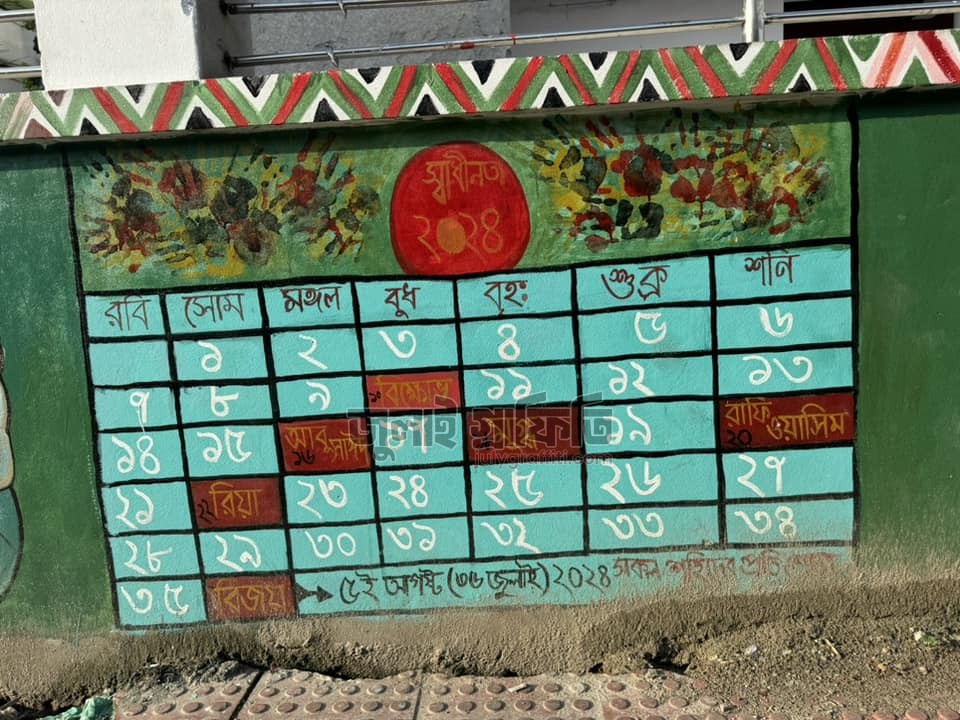 স্বাধীনতা
২০২৪
রবি সোম মঙ্গল বুধ বৃহঃ শুক্র শনি
১ ২ ৩ ৪ ৫ ৬
৭ ৮ ৯ ১০ বিক্ষোভ ১১ ১২ ১৩
১৪ ১৫ আবু সাঈদ ১৬ ১৭ মুগ্ধ ১৯ রাফি ওয়াসিম ২০
২১ ২২ রিয়া ২৩ ২৪ ২৫ ২৬ ২৭
২৮ ২৯ ৩০ ৩১ ৩২ ৩৩ ৩৪
৩৫ বিজয় ৫ই আগষ্ট (৩৬ জুলাই) ২০২৪ সকল শহীদের প্রতি
জুলাই গ্রাফিতি
julygraffiti.com